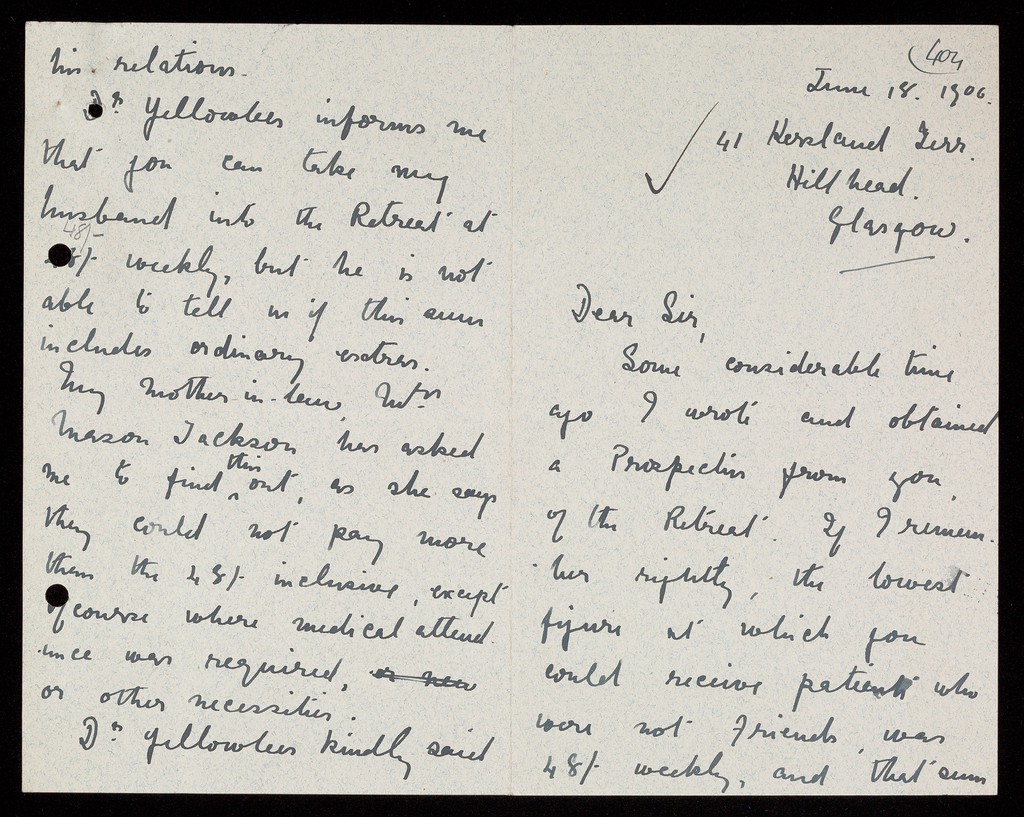 404
June 18. 1906.
41 Kersland Terr.
Hillhead.
Glasgow.
Dear Sir,
Some considerable time
ago I wrote and obtained
a Prospectus from you,
of the Retreat. If I remem-
ber rightly, the lowest
figure at which you
could receive patients who
were not Friends, was
48/- weekly, and that sum
his relations.
Dr Yellowlees informs me
that you can take my
husband into the Retreat at
48/-
48/- weekly, but he is not
able to tell us if this sum
includes ordinary extras.
My mother-in-law, Mrs
Mason Jackson has asked
me to find this out, as she says
they could not pay more
than the 48/- inclusive, except
of course where medical attend-
ance was required, or new
or other necessities.
Dr Yellowlees kindly said